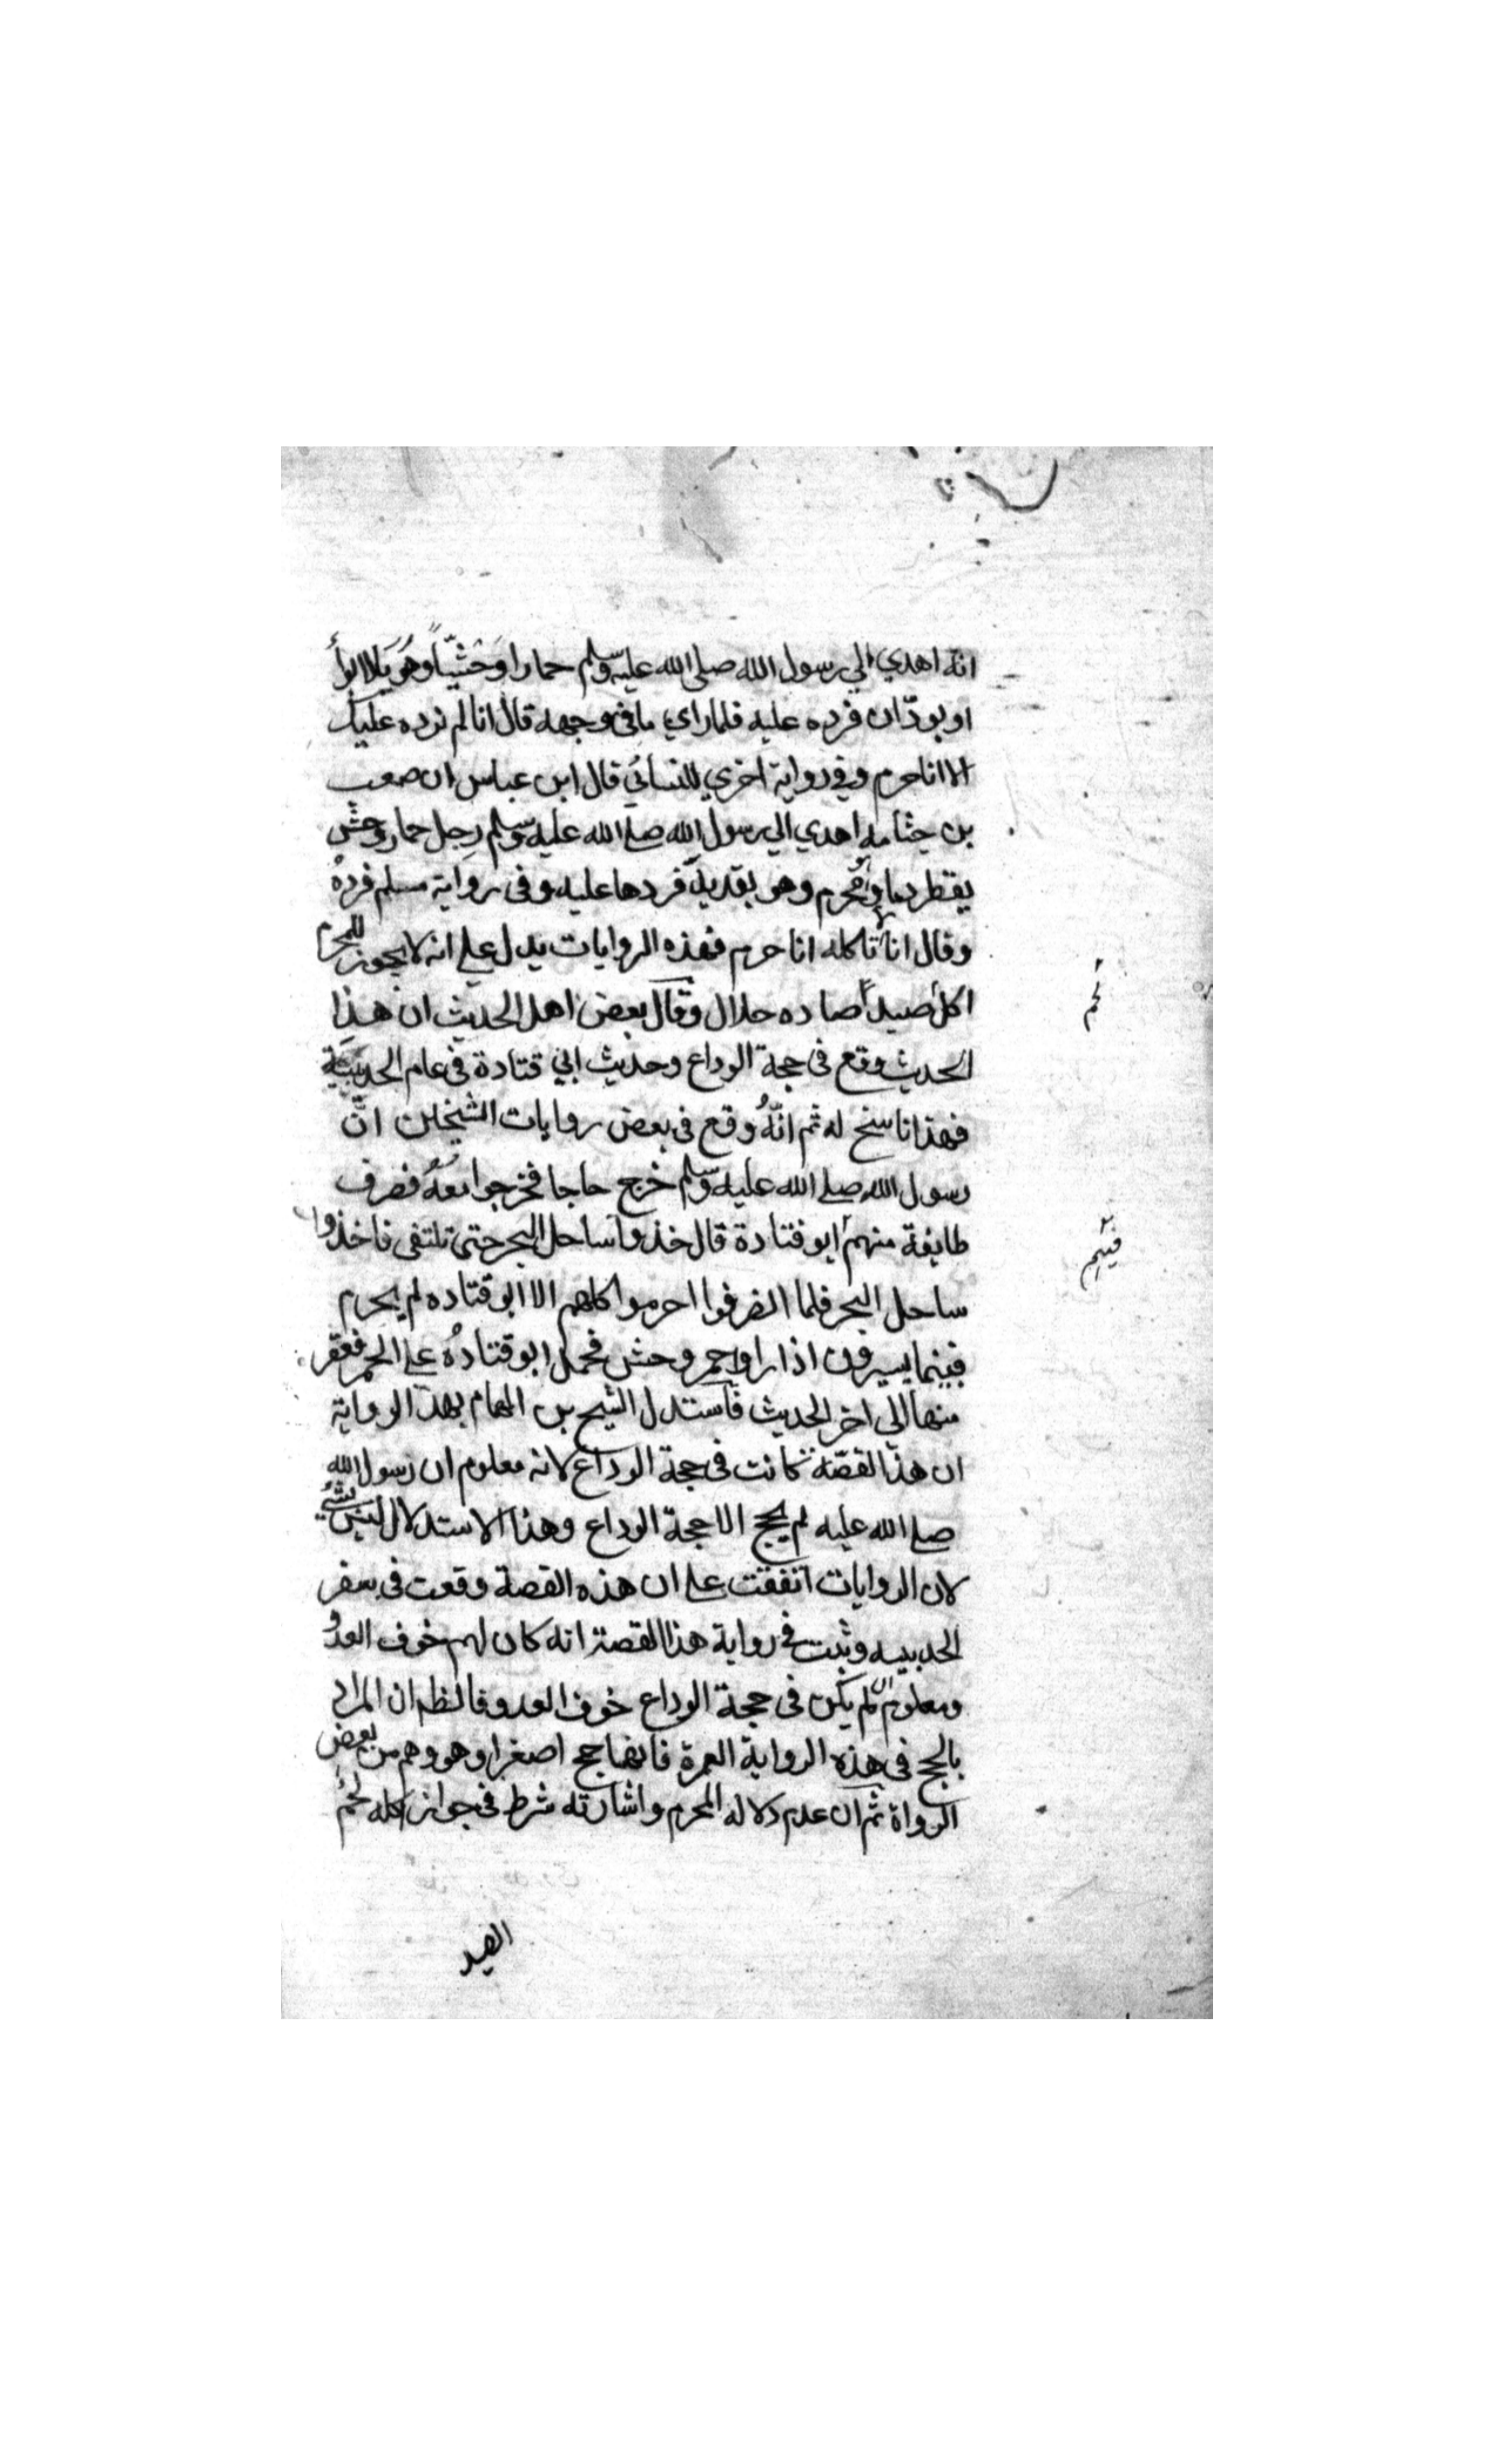 انه اهدي الي رسول الله صلي الله عليه وسلم حمارا وَحْشيّاً وهُوَ بَالابوأ
او بودّان فرده عليه فلما راي ما في وجهه قال انا لم نرده عليك
الا انا حرم وفي رواية اخري للنسائي قال ابن عباس ان صعب
بن جثامه اهدي الي رسول الله صلي الله عليه وسلم رجل حمار وحش
يقطر دما وهو مُحْرم وهو بقديد فردها عليه وفي رواية مسلم فردهُ
وقال انا لا نأكله انا حرم فهذه الروايات يدل علي انه لا يجوز للمحرم
اكل صيد صاده حلال وقال بعض اهل الحديث ان هذا
لحم
الحديث وقع في حجة الوداع وحديث ابي قتادة في عام الحديبية
فهذا ناسخ له ثم انّهُ وقع في بعض روايات الشيخين انّ
رسول الله صلي الله عليه وسلم خرج حاجا فخرجوا مَعَهُ فصرف
طايفة منهم ابو قتادة قال خذوا ساحل البحر حتي نلتقي فاخذوا
فيهم
ساحل البحر فلما انصرفوا احرموا كلهم الا ابو قتاده لم يحرم
فبينما يسيرون اذا راوا حمر وحش فحمل ابو قتادهُ علي الحمر فعقر
منها الي اخر الحديث فاستدل الشيخ بن الهمام بهذ الرواية
ان هذ القصّة كانت في حجة الوداع لانه معلوم ان رسول الله
صلي الله عليه لم يحج الا حجة الوداع وهذا الاستدلال ليس بشيُ
لان الروايات اتفقت علي ان هذه القصة وقعت في سفر
الحديبيه وثبت في رواية هذا القصة انه كان لهم خوف العدُو
ومعلوم ان لم يكن في حجة الوداع خوف العدو فالظ ان المراد
بالحج في هذه الرواية العمرة فانها حج اصغر او هو وهم من بعض
الرواة ثم ان عدم دلاله المحرم واشارته شرط في جواز اكله لحُم
الصيد